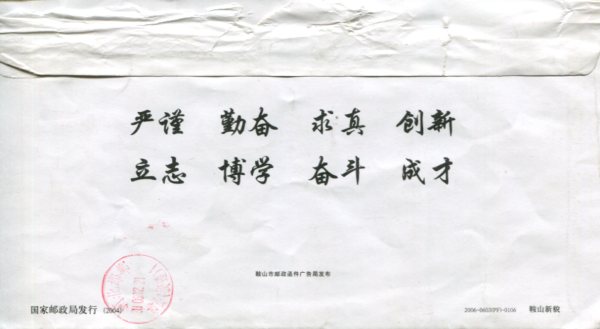 严谨 勤奋 求真 创新
立志 博学 奋斗 成才
鞍山市邮政函件广告局发布
国家邮政局发行 (2004) 2006-0603(PF)-0106 鞍山新锐